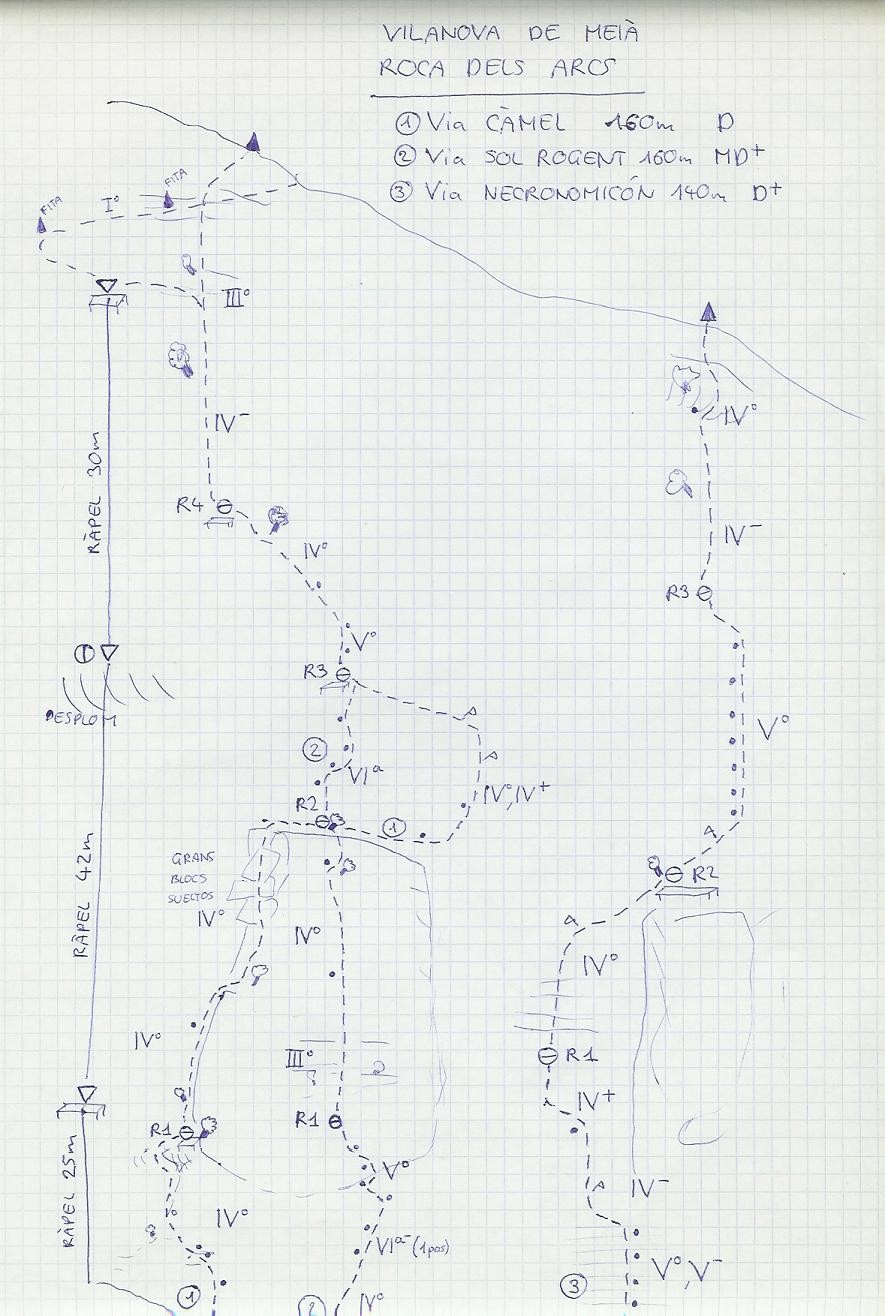 VILANOVA DE MEIÀ
ROCA DELS ARCS
① Via CÀMEL 160m D
② Via SOL ROGENT 160m MD+
③ Via NECRONOMICÓN 140m D+
FITA
FITA
I°
III°
IV-
IV°
RÀPEL 30m
R4
IV°
IV-
R3
V°
R3
DESPLOM
②
VIa
V°
IV°, IV+
R2
①
GRANS
BLOCS
SUELTOS
IV°
RÀPEL 42m
IV°
R2
IV°
IV°
III°
R1
R1
R1
IV+
V°
RÀPEL 25m
IV°
VIa- (1 pas)
IV-
V°, V-
①
②
IV°
③